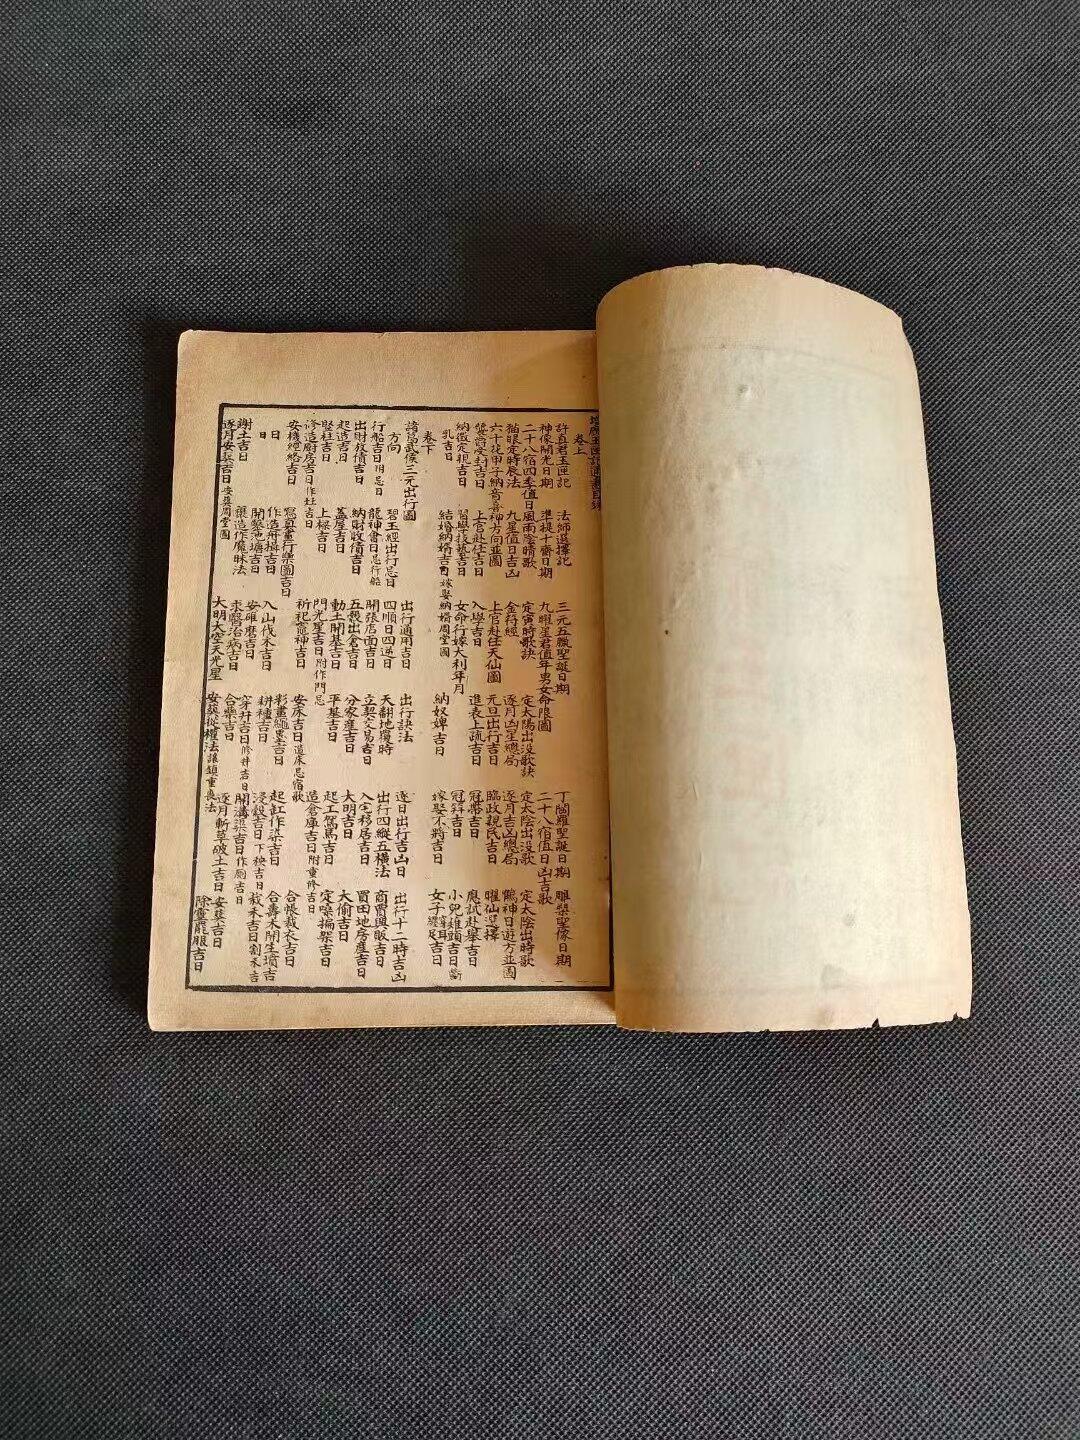 增廣玉匣記通書目錄
卷上
許真君玉匣記 法師選擇記 三元五臘聖誕日期 丁閻羅聖誕日期 雕槊聖像日期
神像開光日期 準提十齋日期 九曜星君值年男女命限圖
二十八宿四季值日風雨陰晴歌 定寅時歌訣 定太陽出没歌訣 二十八宿值日凶吉歌 定太陰出時歌
猫眼定時辰法 九星值日吉凶 金符經 逐月凶星總局 定太陰出没歌 鶴神日遊方並圖
六十花甲子納音喜神方向並圖 上官赴任天仙圖 元旦出行吉日 逐月吉凶總局 曜仙選擇
襲爵受封吉日 上官赴任吉日 入學吉日 進表上疏吉日 臨政親民吉日 應試赴舉吉日
納徵定親吉日 習學技藝吉日 女命行嫁大利年月 冠帶吉日 小兒雉頭吉日斷
乳吉日 結婚納婿吉日嫁娶納婿周堂圖 納奴婢吉日 冠笄吉日 女子穿耳纏足吉日
嫁娶不將吉日
卷下
諸葛武侯三元出行圖 碧玉經出行忌日 出行通用吉日 出行訣法 逐日出行吉凶日 出行十二時吉凶
方向 龍神會日忌行船 四順日四逆日 天翻地覆時 出行四縱五橫法 商賈興販吉日
行船吉日附忌日 納財收債吉日 開張店面吉日 立契交易吉日 入宅移居吉日 買田地房產吉日
出財放債吉日 蓋屋吉日 五穀出倉吉日 分家產吉日 大明吉日 大偷吉日
起造吉日 上樑吉日 動土開基吉日 平基吉日 起工駕馬吉日 定磉搧架吉日
豎柱吉日 門光星吉日附作門忌 造倉庫吉日附重修吉日
修造廚房吉日作灶吉日 祈祀竈神吉日 安床吉日造床忌宿歌 合帳裁衣吉日
安機經絡吉日 寫真畫行樂圖吉日 彩畫繩墨吉日 起缸作染吉日 合壽木開生墳吉
日 作造舟楫吉日 入山伐木吉日 耕種吉日 浸穀吉日下秧吉日 栽禾吉日割禾吉
日 開鑿池塘吉日 安碓磨吉日 穿井吉日修井吉日 開溝渠吉日作廁吉日
謝土吉日 藥造作魘昧法 求醫治病吉日 合藥吉日 逐月斬草破土吉日 安葬吉日
逐月安葬吉日安葬周堂圖 大明大空天光星 安葬從權法禳鎮重喪法 除靈罷服吉日